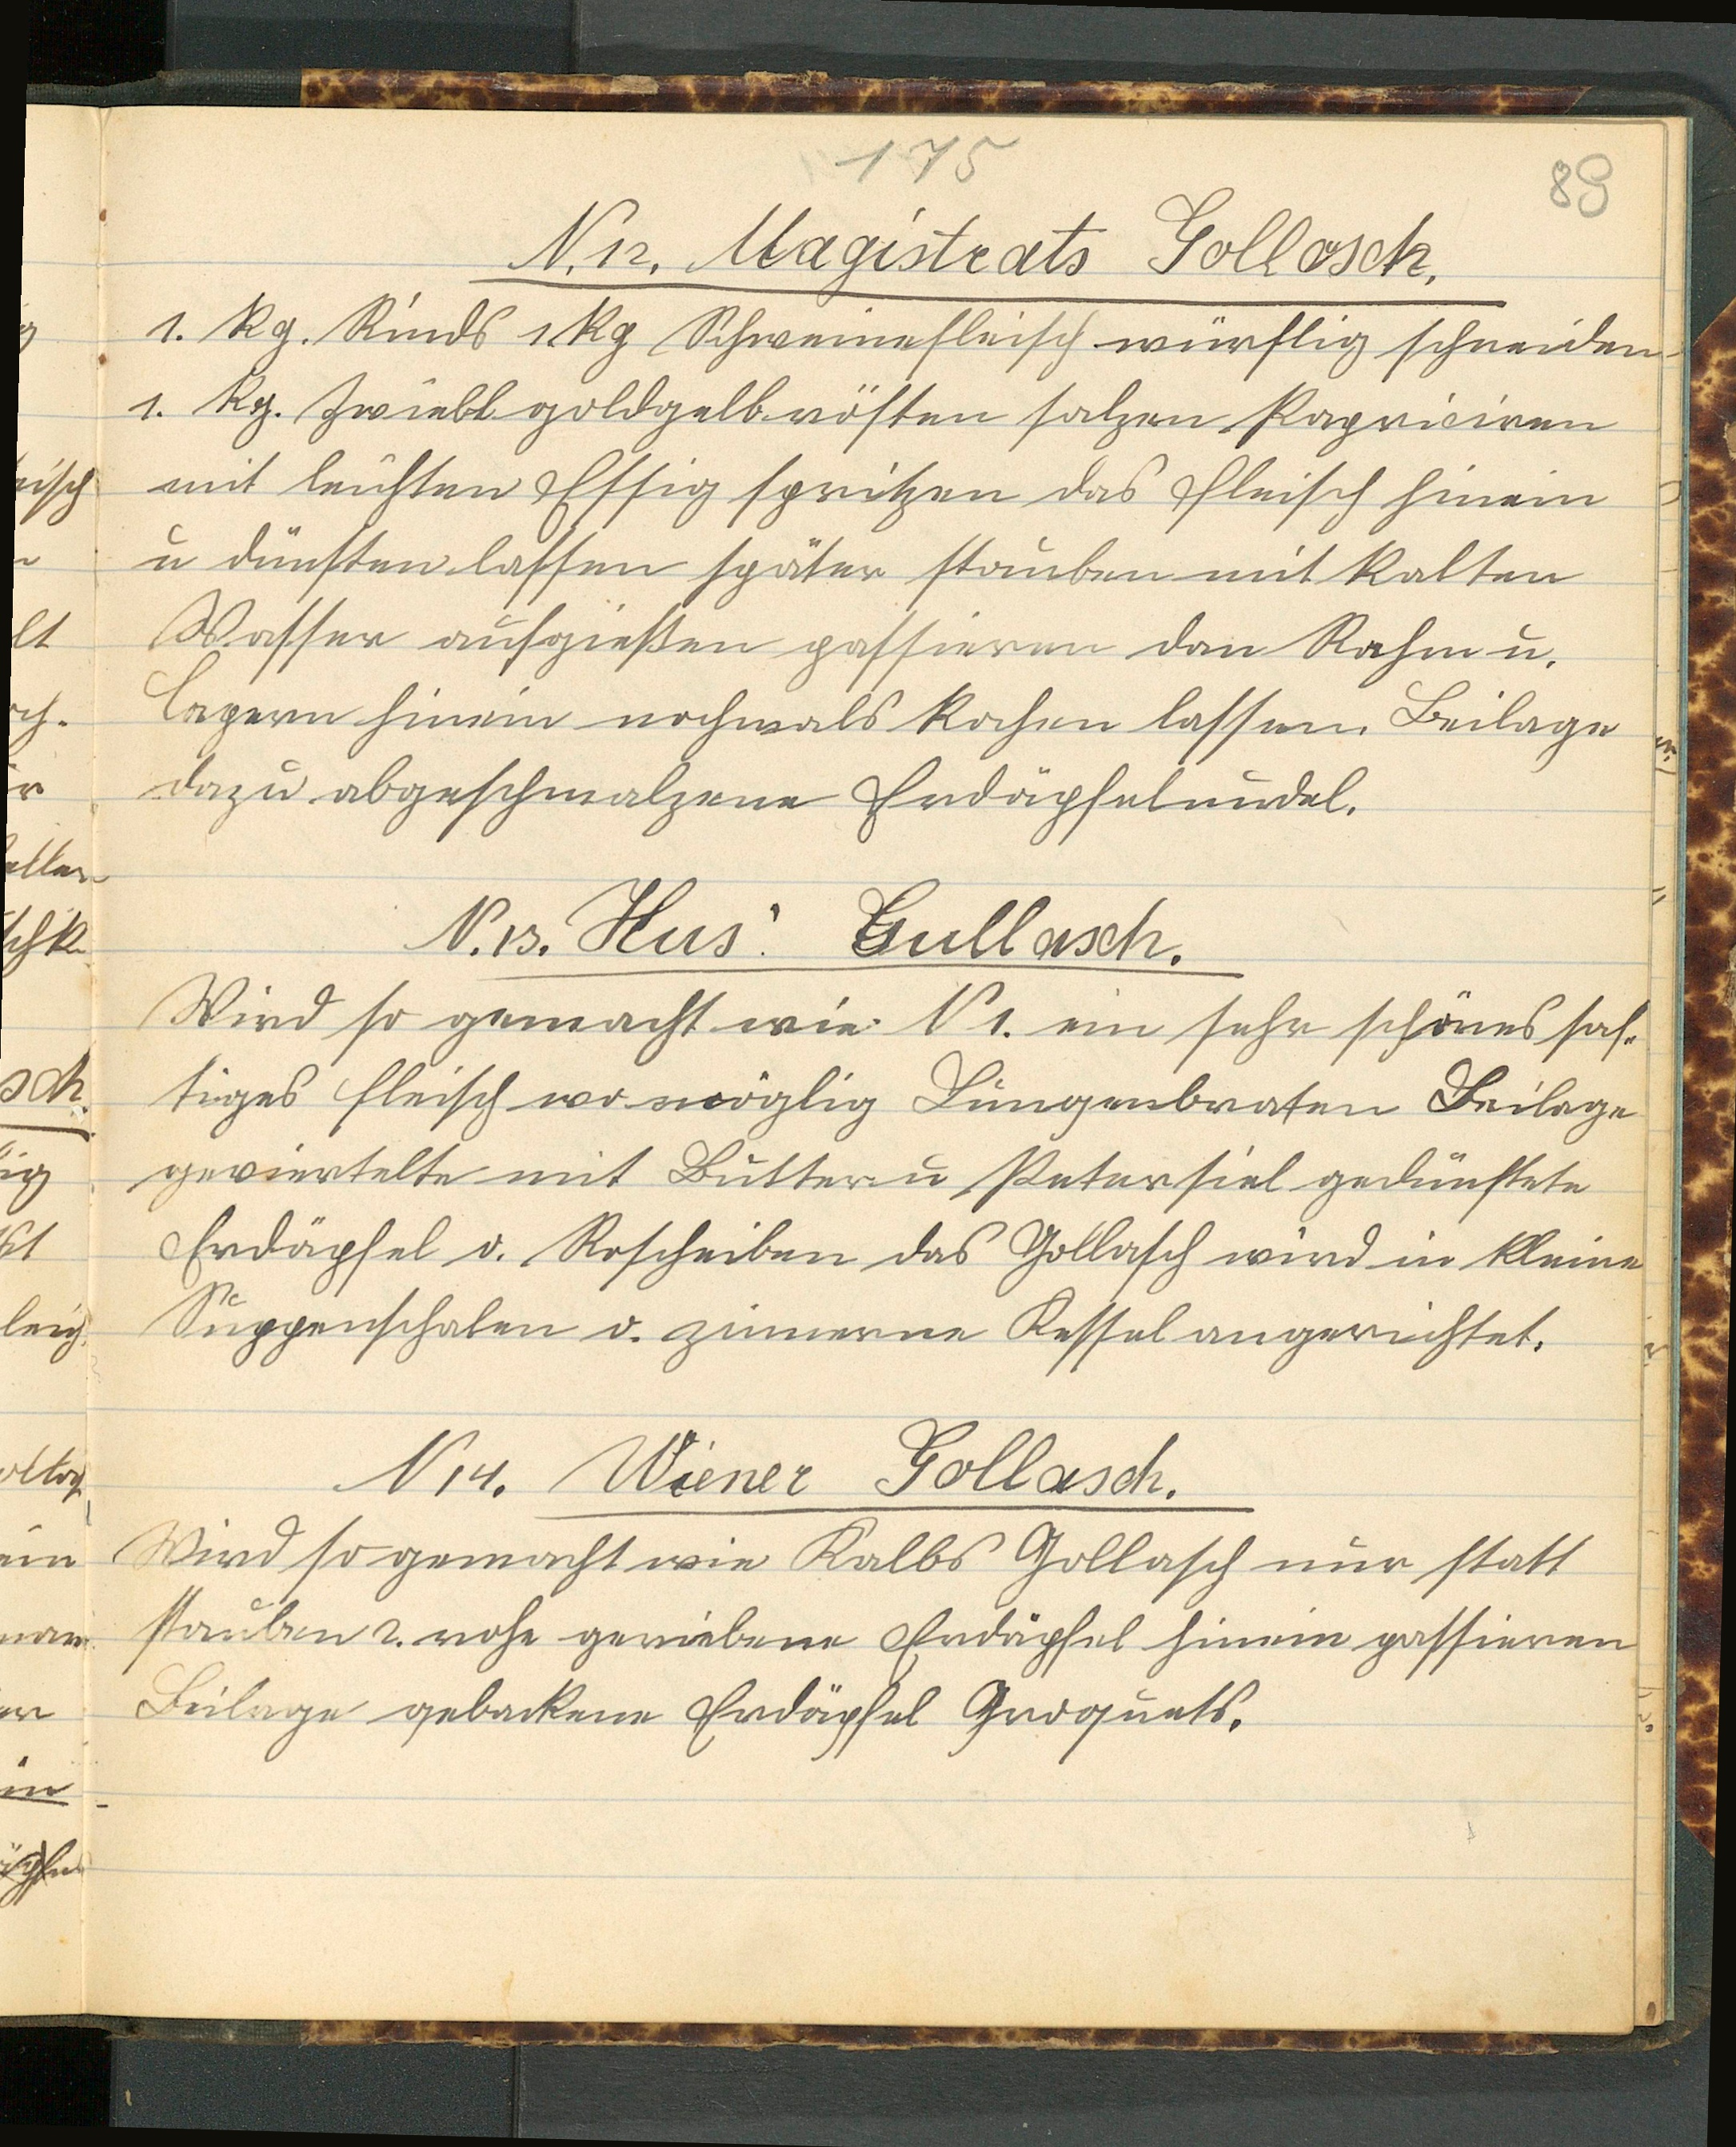 175
89
N. 12. Magistrats Gollasch.
1. kg. Rinds 1 kg Schweinefleisch würflig schneiden
1. kg. Zwiebl goldgelb rösten salzen Papriciren
mit leichten Essig spritzen das Fleisch hinein
u dünsten lassen später stauben mit kalten
Wasser aufgießen passieren dan Rahm u.
Capern hinein nochmals kochen lassen. Beilage
dazu abgeschmalzene Erdäpfelnudel.
N. 13. Hus: Gullasch.
Wird so gemacht wie N 1. ein sehr schönes saf-
tiges Fleisch wo möglig Lungenbraten Beilage
geviertelte mit Butter u Petersiel gedünstete
Erdäpfel o. Roscheiben das Gollasch wird in kleine
Suppenschalen o. zinnerne Kessel angerichtet.
N 14. Wiener Gollasch.
Wird so gemacht wie Kalbs Gollasch nur statt
stauben 2. rohe geriebene Erdäpfel hinein passieren
Beilage gebackene Erdäpfel Groquets.